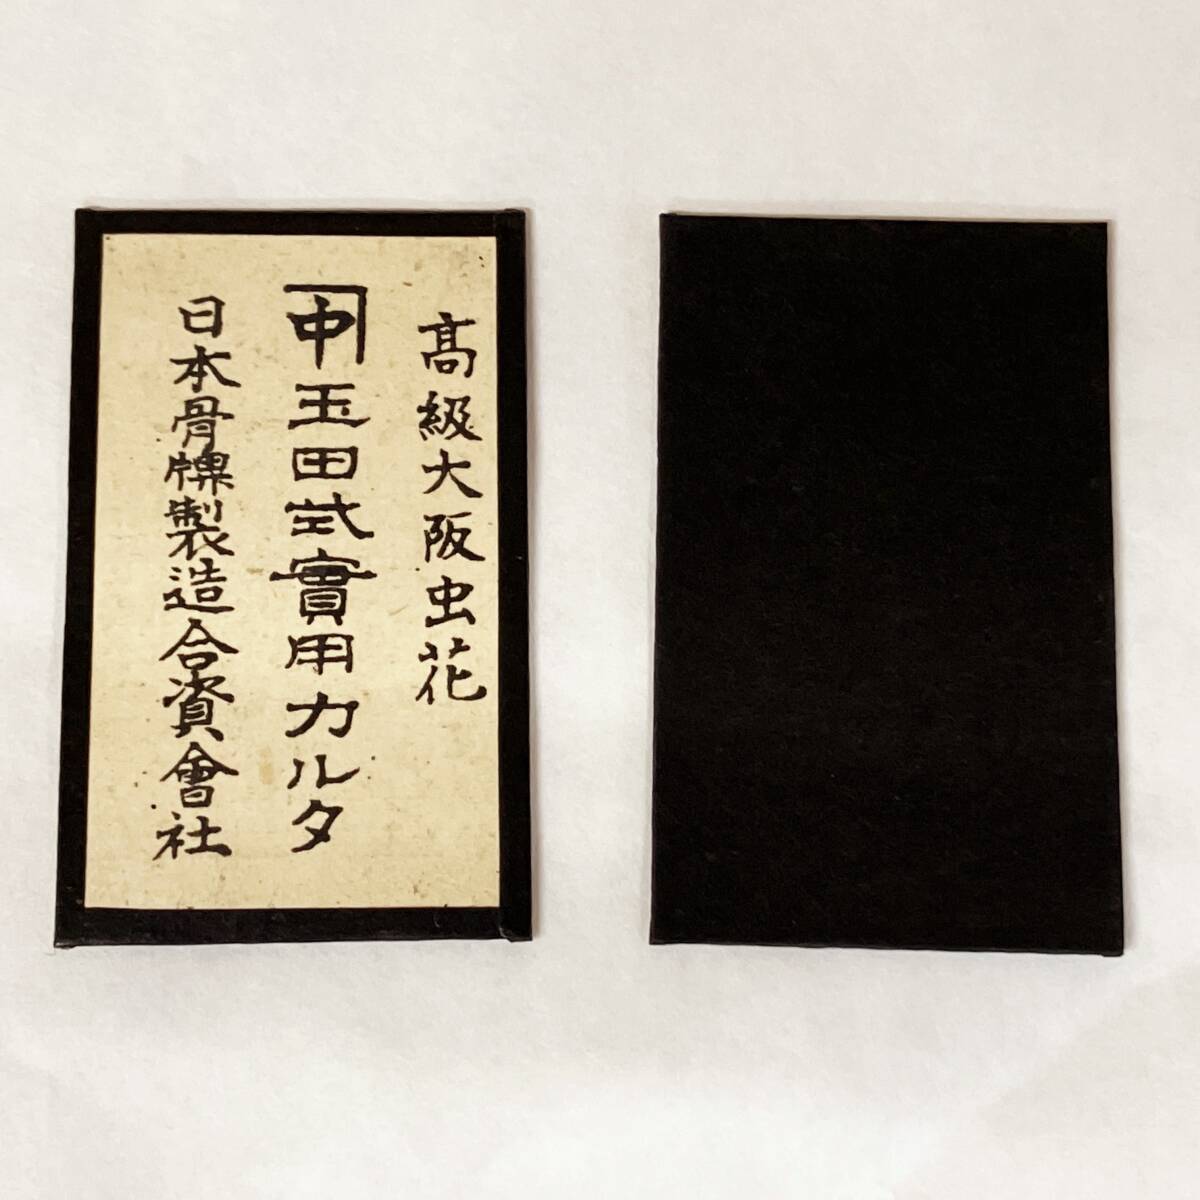 高級大阪虫花
中玉田式實用カルタ
日本骨牌製造合資會社